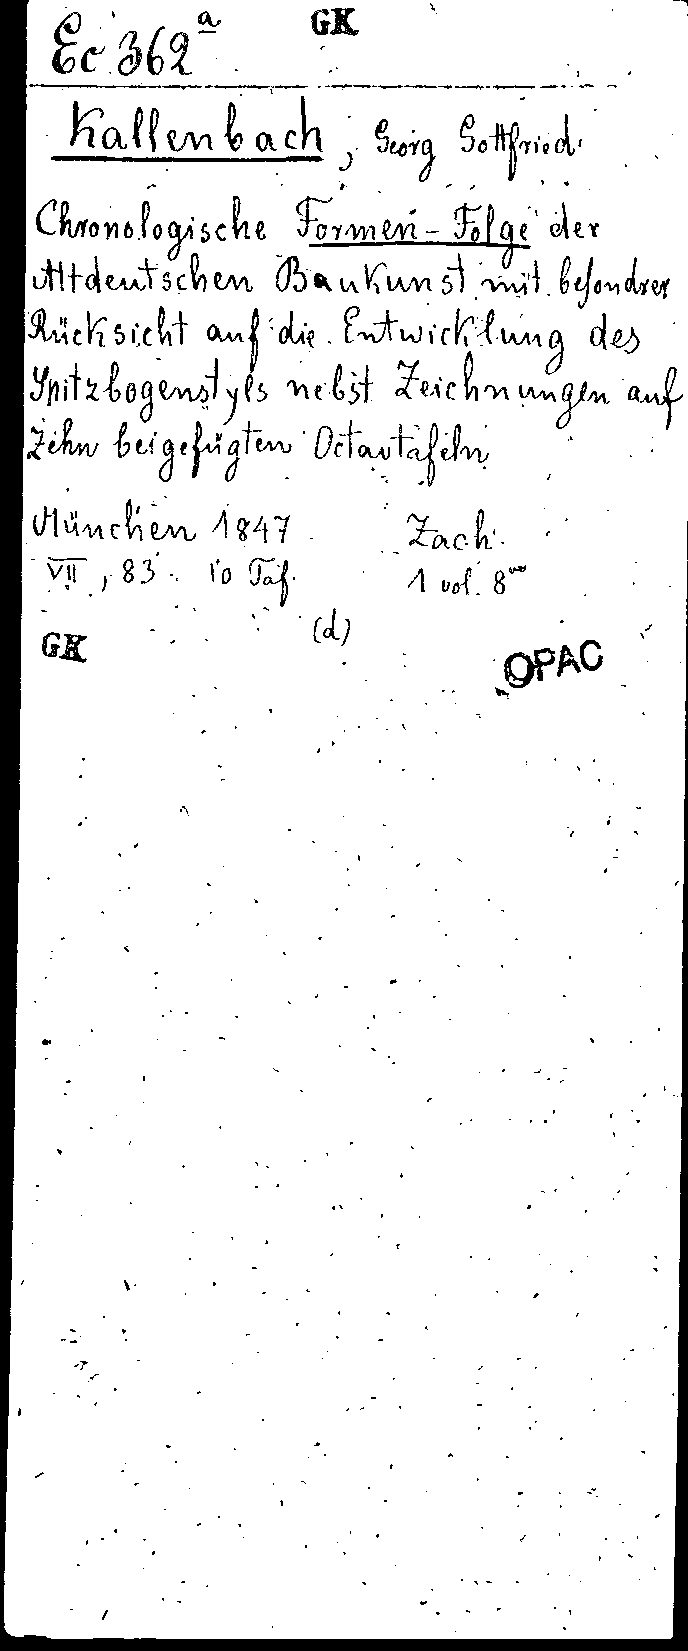 Ec 362ª GK
Kallenbach, Georg Gottfried.
Chronologische Formen-Folge der
Altdeutschen Baukunst mit besondrer
Rücksicht auf die Entwicklung des
Spitzbogenstyls nebst Zeichnungen auf
Zehn beigefügten Octavtafeln
München 1847 Zach.
VII, 83. 10 Taf. 1 vol. 8vo
(d)
GK OPAC